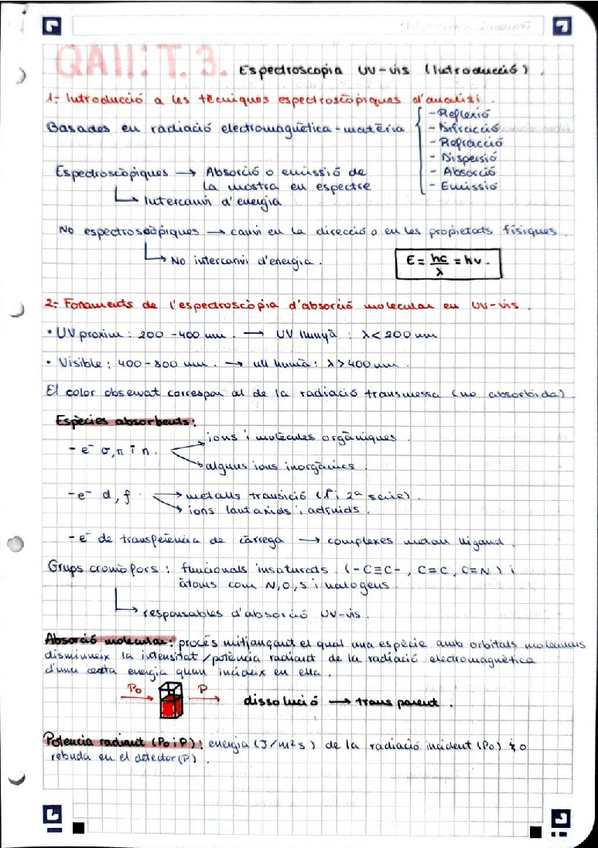 QAII: T. 3. Espectroscopia UV-vis (Introducció).
1- Introducció a les tècniques espectroscòpiques d'anàlisi.
Basades en radiació electromagnètica-matèria
- Reflexió
- Difracció
- Refracció
- Dispersió
- Absorció
- Emissió
Espectroscòpiques → Absorció o emissió de
la mostra en espectre
Intercanvi d'energia
No espectroscòpiques → canvi en la direcció o en les propietats físiques.
No intercanvi d'energia.
E = hc/λ = hν.
2- Fonaments de l'espectroscòpia d'absorció molecular en UV-vis.
• UV pròxim: 200-400 nm. → UV llunyà: λ<200 nm
• Visible: 400-800 nm. → ull humà: λ>400 nm.
El color observat correspon al de la radiació transmessa (no absorbida).
Espècies absorbents:
- e⁻ σ, π i n.
ions i molècules orgàniques.
alguns ions inorgànics.
- e⁻ d, f.
metalls transició (1ª i 2ª sèrie).
ions lantànids i actínids.
- e⁻ de transferència de càrrega → complexes metall lligand.
Grups cromòfors: funcionals insaturats (-C≡C-, C=C, C≡N) i
àtoms com N, O, S i halogens.
responsables d'absorció UV-vis.
Absorció molecular: procés mitjançant el qual una espècie amb orbitals moleculars
disminueix la intensitat/potència radiant de la radiació electromagnètica
d'una certa energia quan incideix en ella.
P₀ P dissolució → transparent.
Potència radiant (P₀ i P): energia (J/m²s) de la radiació incident (P₀) o
rebuda en el detector (P).